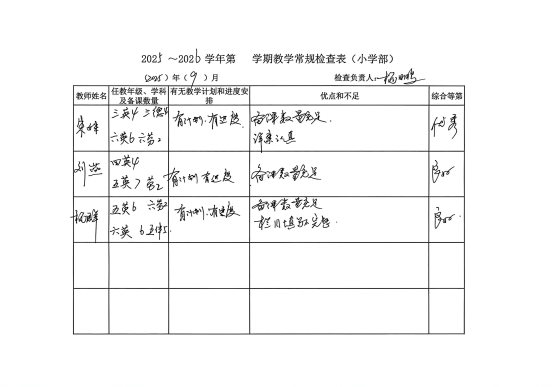 2025 ~2026 学年第 学期教学常规检查表（小学部）
(2025) 年 (9) 月 检查负责人:
教师姓名 任教年级、学科及备课数量 有无教学计划和进度安排 优点和不足 综合等第
三英4 三德4
六英6 六劳2
有计划.有进度
备课数量充足
详案认真
优秀
四英4
五英7 劳2
有计划 有进度
备课数量充足
良好
五英6 六劳2
六英6
有计划.有进度
备课数量充足
栏目填写完整.
良好